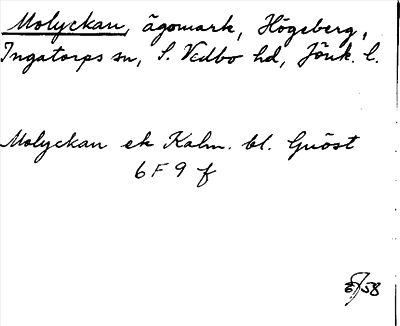 Molyckan, ägomark, Högeberg,
Ingatorps sn, S. Vedbo hd, Jönk. l.
Molyckan ek Kalm. bl. Gnöst
6 F 9 f
58